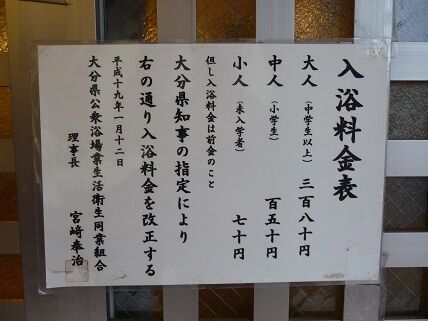 入浴料金表
大人（中学生以上）三百八十円
中人（小学生）百五十円
小人（未入学者）七十円
但し入浴料金は前金のこと
大分県知事の指定により
右の通り入浴料金を改正する
平成十九年一月十二日
大分県公衆浴場業生活衛生同業組合
理事長 宮﨑奉治